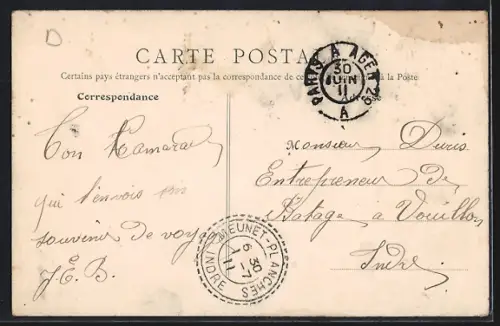 D
CARTE POSTA
Certains pays étrangers n'acceptant pas la correspondance de ce à la Poste
PARIS A AGEN 2°
30
JUIN
11
A
Correspondance
Ton Kamarad
qui t'envois un
souvenir de voyage
J.E.B.
Monsieur Duris
Entrepreneur de
Batage a Vouillon
Indre
MEUNET-PLANCHES
6
30
-7
11
(INDRE)